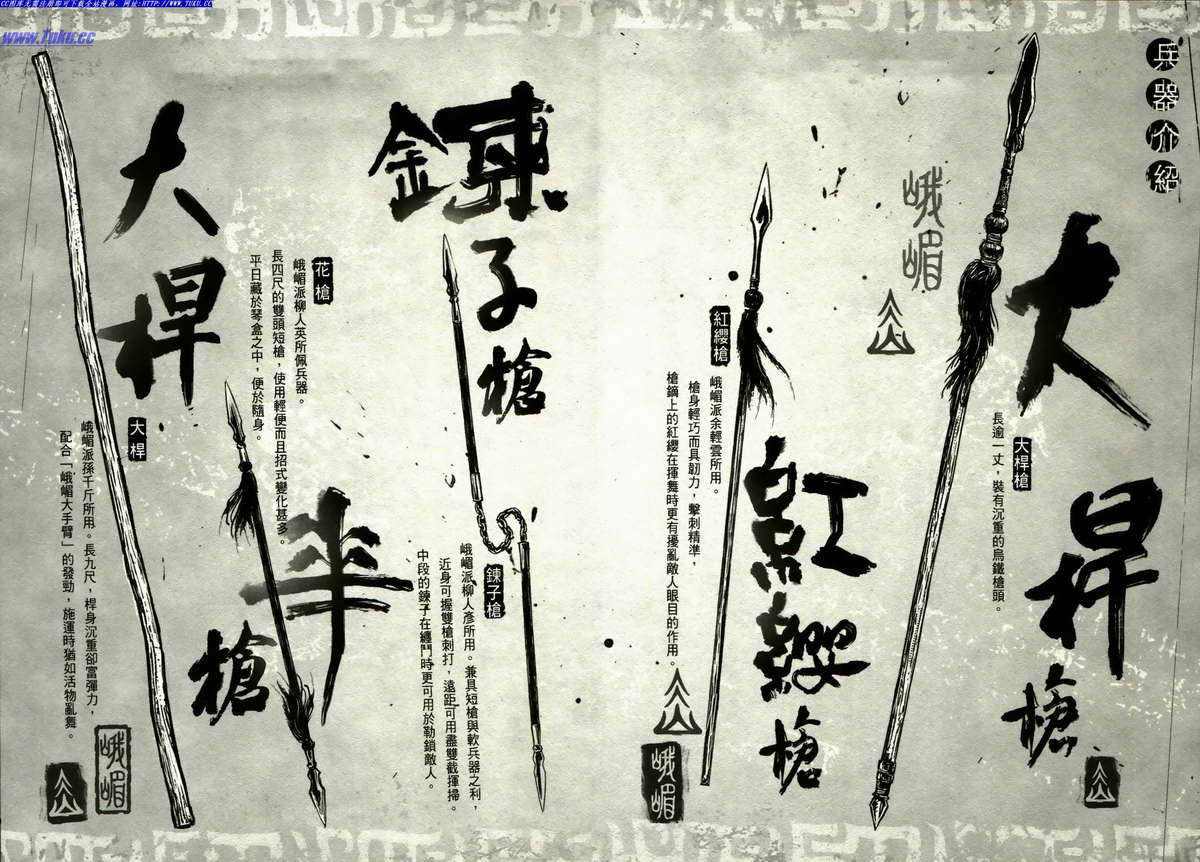 CC图库无需注册即可下载全站漫画，网址:HTTP://WWW.TUKU.CC
www.Tuku.cc
兵器介紹
大桿槍
大桿槍
長逾一丈，裝有沉重的烏鐵槍頭。
峨嵋
紅纓槍
紅纓槍
峨嵋派余輕雲所用。
槍身輕巧而具韌力，擊刺精準，
槍鏑上的紅纓在揮舞時更有擾亂敵人眼目的作用。
峨嵋
鍊子槍
鍊子槍
峨嵋派柳人彥所用。兼具短槍與軟兵器之利，
近身可握雙槍刺打，遠距可用盡雙截揮掃。
中段的鍊子在纏鬥時更可用於勒鎖敵人。
華槍
花槍
峨嵋派柳人英所佩兵器。
長四尺的雙頭短槍，使用輕便而且招式變化甚多。
平日藏於琴盒之中，便於隨身。
大桿
大桿
峨嵋派孫千斤所用。長九尺，桿身沉重卻富彈力，
配合「峨嵋大手臂」的發勁，施運時猶如活物亂舞。
峨嵋